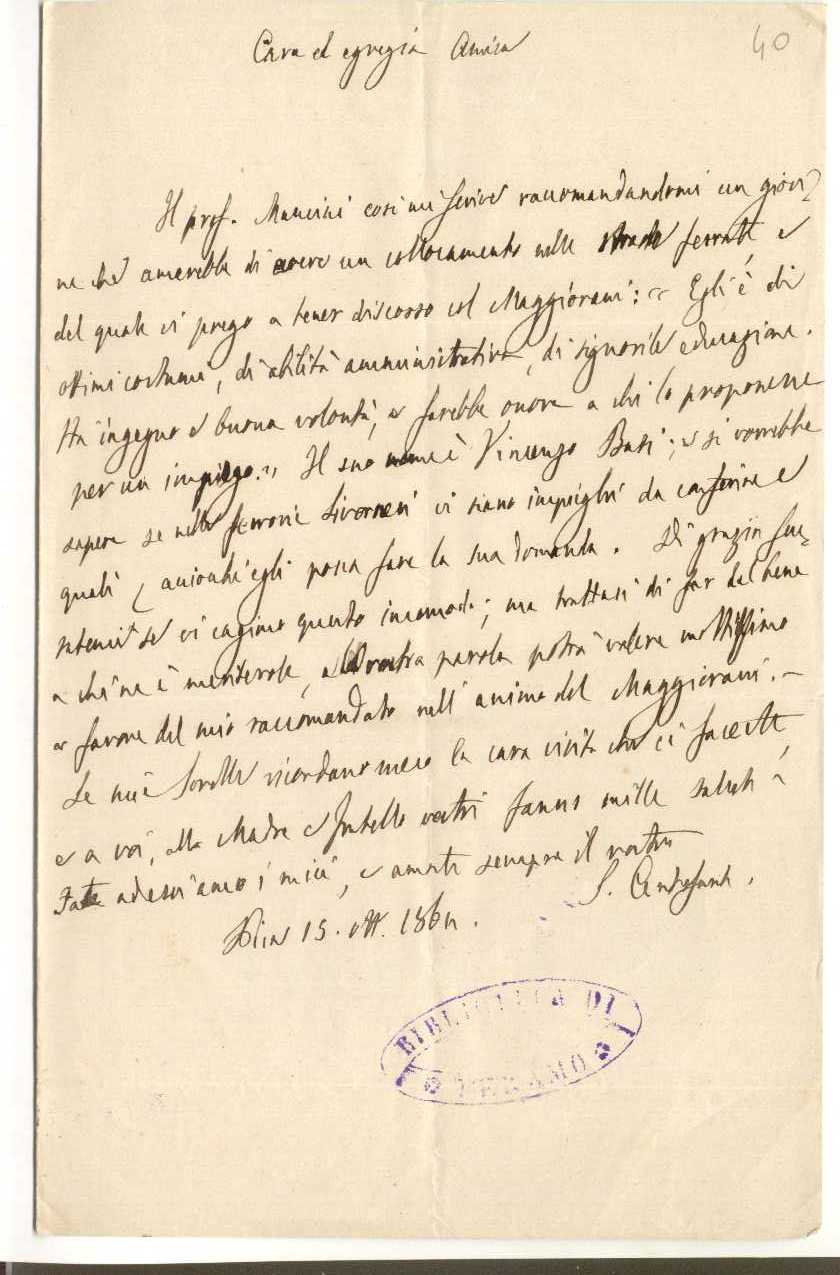 40
Cara ed egregia Amica
Il prof. Mancini così mi scrive raccomandandomi un giovi-
ne che amerebbe di avere un collocamento nelle strade ferrate, e
del quale vi prego a tener discorso col Maggiorani: « Egli è di
ottimi costumi, di abilità amministrativa, di signorile educazione.
Ha ingegno e buona volontà, e farebbe onore a chi lo proponesse
per un impiego. » Il suo nome è Vincenzo Busi; e si vorrebbe
sapere se nelle ferrovie Livornesi vi siano impieghi da conferire e
quali, acciocchè egli possa fare la sua domanda. Di grazia
se vi cagiono questo incomodo; ma trattasi di far del bene
a chi ne è meritevole, e la vostra parola potrà valere moltissimo
a favore del mio raccomandato nell'animo del Maggiorani. —
Le mie Sorelle ricordano meco la cara visita che ci faceste,
e a voi, alla Madre e fratello vostri fanno mille saluti
Fate adesso i miei, e amate sempre il vostro
15. ott. 1864.
BIBLIOTECA DI
TERAMO